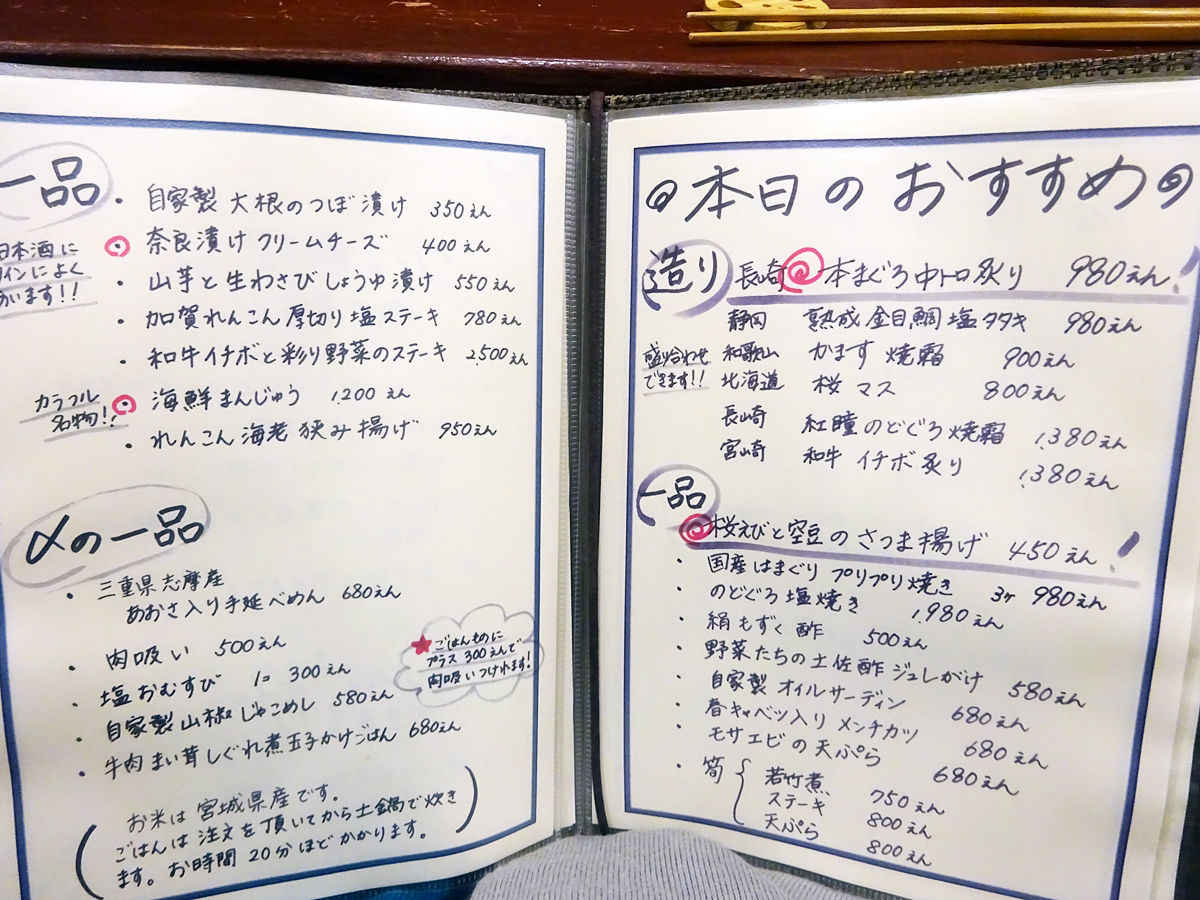 一品
日本酒に
ワインによく
あいます!!
・自家製 大根のつぼ漬け 350えん
・奈良漬け クリームチーズ 400えん
・山芋と生わさび しょうゆ漬け 550えん
・加賀れんこん 厚切り 塩ステーキ 780えん
・和牛イチボと彩り野菜のステーキ 2,500えん
カラフル
名物!!
海鮮まんじゅう 1,200えん
・れんこん 海老 挟み揚げ 950えん
〆の一品
・三重県 志摩産
あおさ入り手延べめん 680えん
・肉吸い 500えん
・塩おむすび 1コ 300えん
・自家製山椒じゃこめし 580えん
・牛肉まい茸しぐれ煮玉子かけごはん 680えん
★ごはんものに
プラス300えんで
肉吸いつけれます!
お米は宮城県産です。
ごはんは注文を頂いてから土鍋で炊き
ます。お時間20分ほどかかります。
本日のおすすめ
造り
盛り合わせ
できます!!
長崎 本まぐろ中トロ炙り 980えん!
静岡 熟成金目鯛塩タタキ 980えん
和歌山 かます 焼霜 900えん
北海道 桜マス 800えん
長崎 紅瞳のどぐろ焼霜 1,380えん
宮崎 和牛 イチボ炙り 1,380えん
一品
桜えびと空豆のさつま揚げ 450えん!
・国産はまぐり プリプリ焼き 3ヶ 980えん
・のどぐろ塩焼き 1,980えん
・絹もずく酢 500えん
・野菜たちの土佐酢ジュレがけ 580えん
・自家製オイルサーディン 680えん
・春キャベツ入り メンチカツ 680えん
・モサエビの天ぷら 680えん
・筍 若竹煮 750えん
ステーキ 800えん
天ぷら 800えん